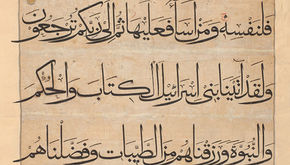 فلنفسه ومن أسأ فعليها ثم إلى ربكم ترجعون
ولقد آتينا بنی اسرائیل الكتاب والحكم
والنبوة ورزقناهم من الطيبات وفضلناهم